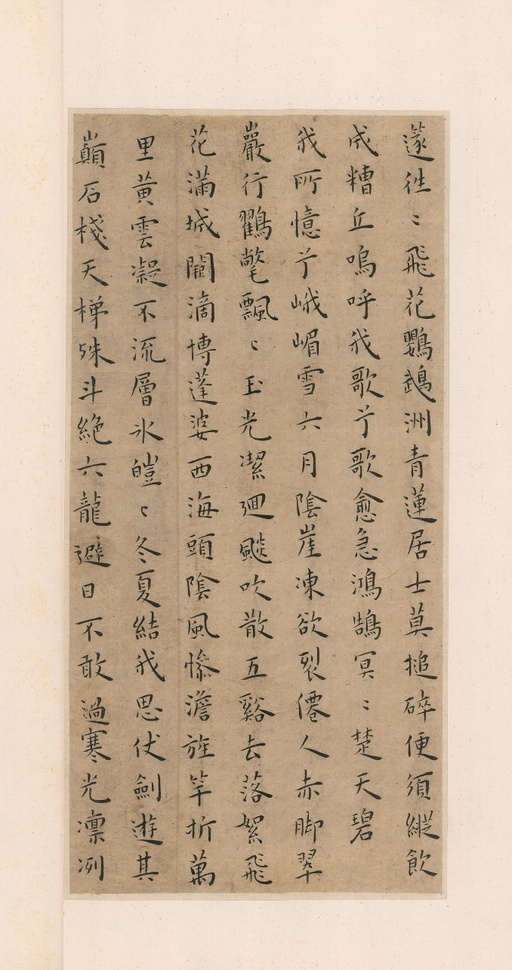 蓬往〻飛花鸚鵡洲青蓮居士莫搥碎便須縱飲
成糟丘嗚呼我歌兮歌愈急鴻鵠冥〻楚天碧
我所憶兮峨嵋雪六月陰崖凍欲裂僊人赤脚翠
巖行鸛氅飄〻玉光潔迴飈吹散五谿去落絮飛
花滿城闉滴博蓬婆西海頭陰風慘澹旌竿折萬
里黃雲凝不流層冰皚〻冬夏結我思伏劍遊其
巔石棧天梯殊斗絶六龍避日不敢過寒光凛冽